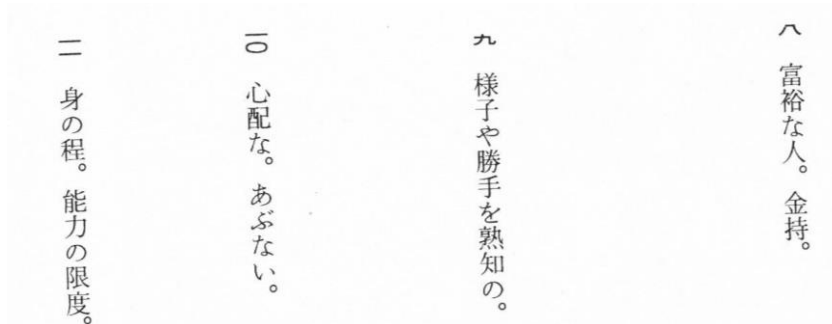 八 富裕な人。金持。
九 様子や勝手を熟知の。
一〇 心配な。あぶない。
一一 身の程。能力の限度。